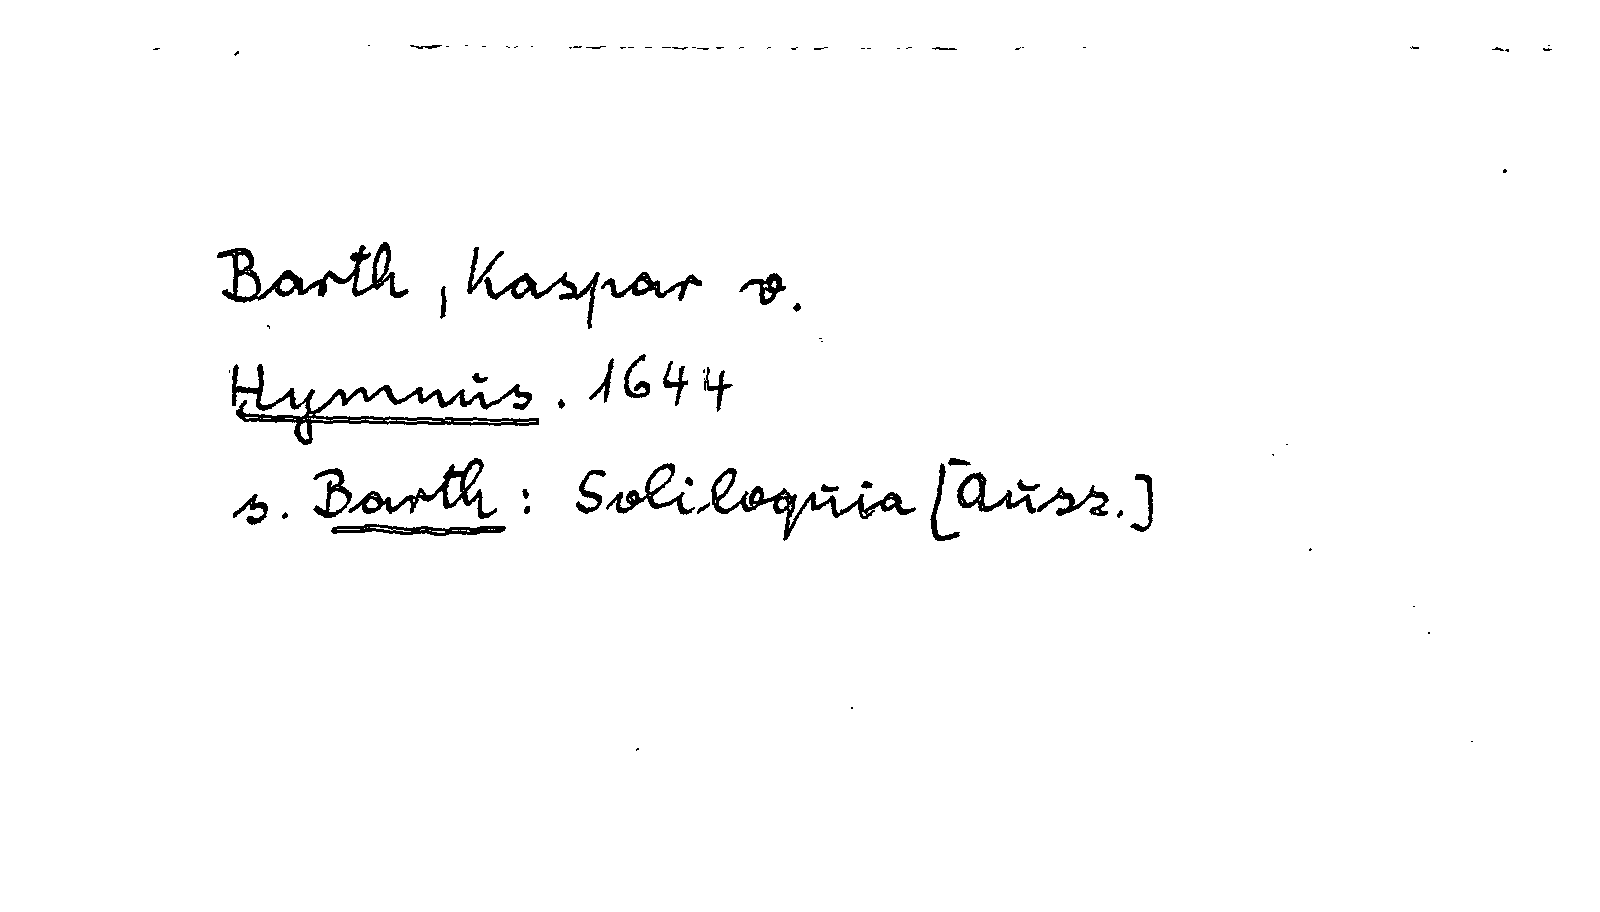 Barth, Kaspar v.
Hymnus. 1644
s. Barth: Soliloquia [Ausz.]